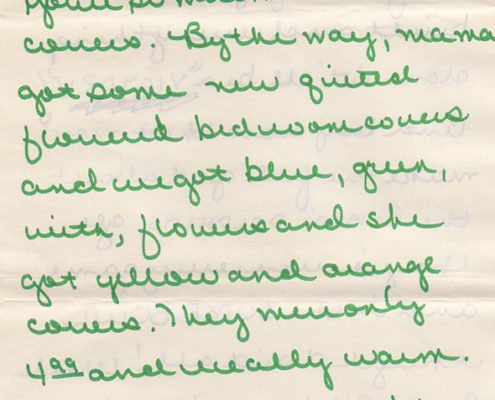 covers. By the way, mama
got some new quited
flowered bedroom covers
and we got blue, green,
with, flowers and she
got yellow and orange
covers. They were only
4.99 and really warm.